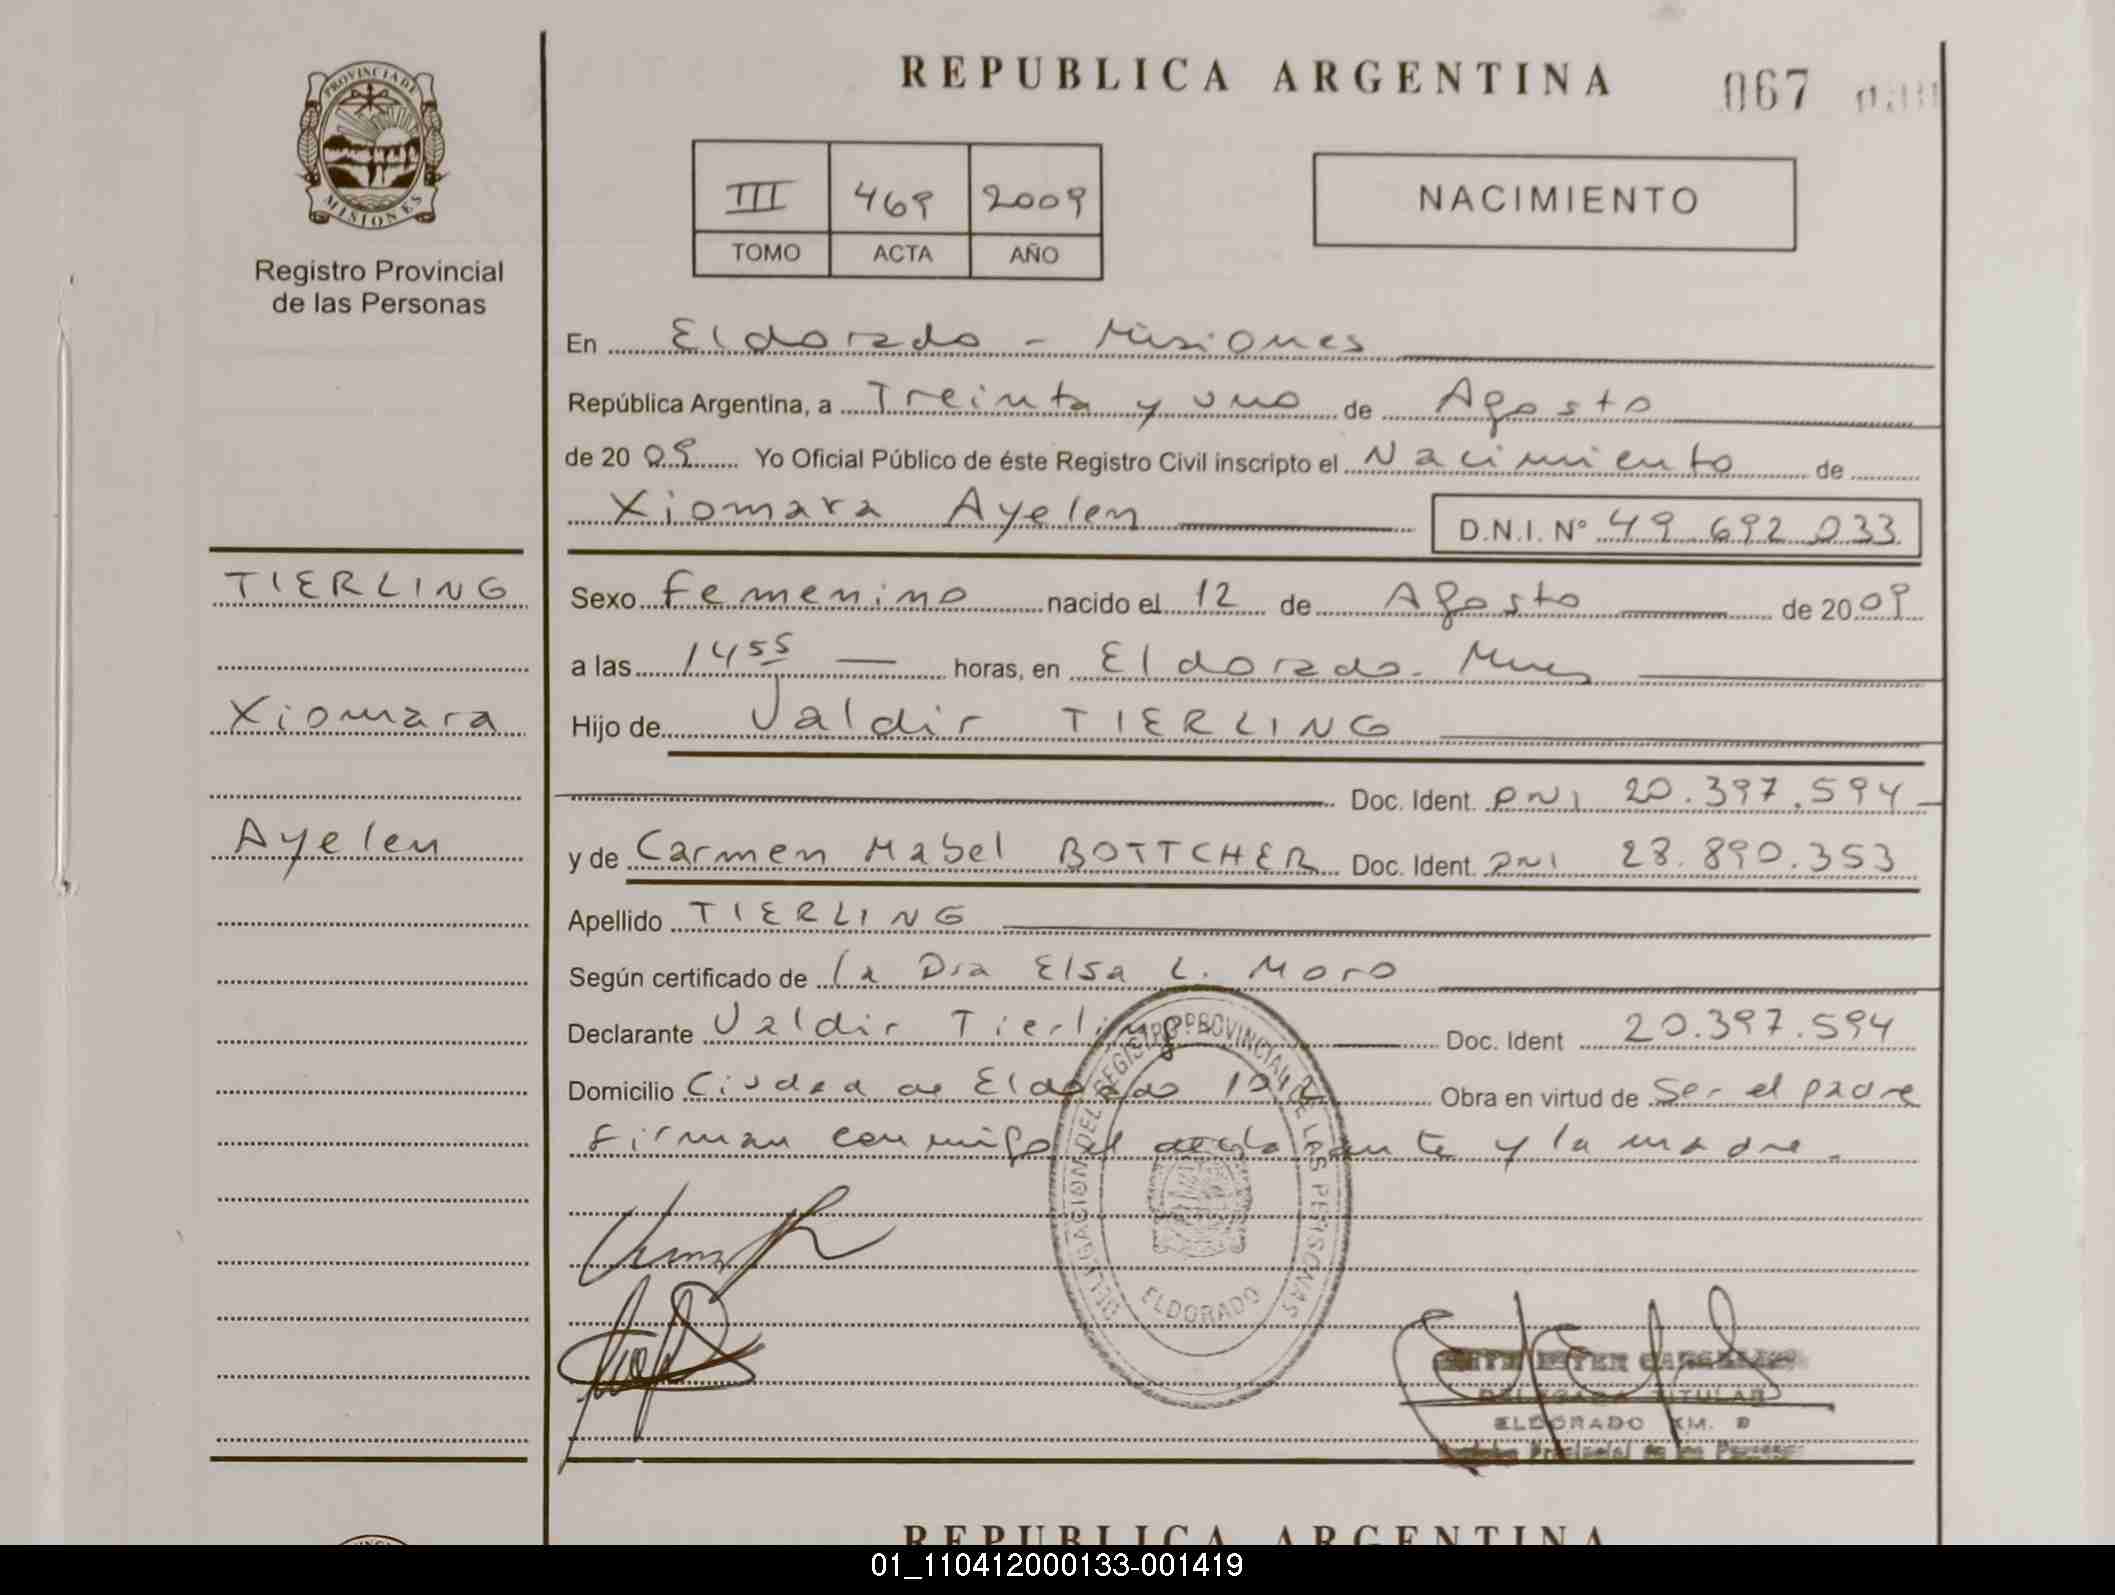 PROVINCIA DE
MISIONES
Registro Provincial
de las Personas
REPUBLICA ARGENTINA 067
III 469 2009
TOMO ACTA AÑO
NACIMIENTO
En Eldorado - Misiones
República Argentina, a Treinta y uno de Agosto
de 2009 Yo Oficial Público de éste Registro Civil inscripto el Nacimiento de
Xiomara Ayelen D.N.I. Nº 49.692.033
TIERLING
Xiomara
Ayelen
Sexo Femenino nacido el 12 de Agosto de 2009
a las 14 55 horas, en Eldorado - Mnes
Hijo de Valdir TIERLING
Doc. Ident. DNI 20.397.594
y de Carmen Mabel BOTTCHER Doc. Ident. DNI 28.890.353
Apellido TIERLING
Según certificado de la Dra Elsa L. Moro
Declarante Valdir Tierling Doc. Ident 20.397.594
Domicilio Ciudad de Eldorado 1042 Obra en virtud de Ser el padre
Firman conmigo el declarante y la madre.
DELEGACION DEL REGISTRO PROVINCIAL DE LAS PERSONAS
ELDORADO
ESTER
DELEGADA TITULAR
ELDORADO KM. 9
Provincial de las Personas
REPUBLICA ARGENTINA
01_110412000133-001419